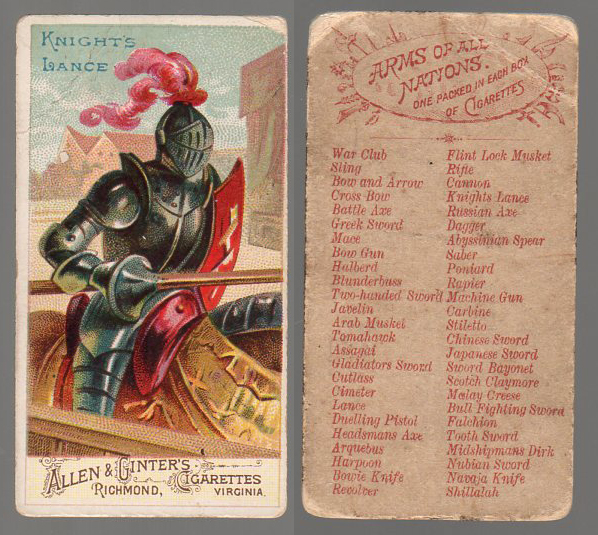 KNIGHT'S
LANCE
ALLEN & GINTER'S CIGARETTES
RICHMOND, VIRGINIA.
ARMS OF ALL
NATIONS.
ONE PACKED IN EACH BOX
OF CIGARETTES
War Club
Sling
Bow and Arrow
Cross Bow
Battle Axe
Greek Sword
Mace
Bow Gun
Halberd
Blunderbuss
Two-handed Sword
Javelin
Arab Musket
Tomahawk
Assagai
Gladiators Sword
Cutlass
Cimeter
Lance
Duelling Pistol
Headsmans Axe
Arquebus
Harpoon
Bowie Knife
Revolver
Flint Lock Musket
Rifle
Cannon
Knights Lance
Russian Axe
Dagger
Abyssinian Spear
Saber
Poniard
Rapier
Machine Gun
Carbine
Stiletto
Chinese Sword
Japanese Sword
Sword Bayonet
Scotch Claymore
Malay Creese
Bull Fighting Sword
Falchion
Tooth Sword
Midshipmans Dirk
Nubian Sword
Navaja Knife
Shillalah